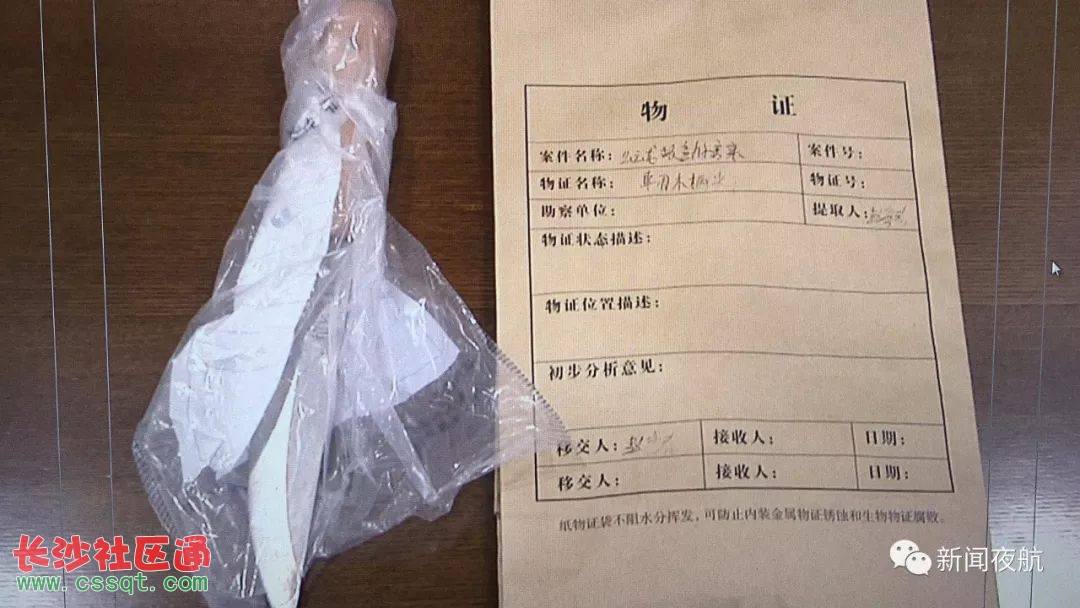 物 证
案件名称: 案件号:
物证名称: 单刃木柄尖 物证号:
勘察单位: 提取人:
物证状态描述:
物证位置描述:
初步分析意见:
移交人: 接收人: 日期:
移交人: 接收人: 日期:
纸物证袋不阻水分挥发,可防止内装金属物证锈蚀和生物物证腐败。
长沙社区通
www.cssqt.com
新闻夜航